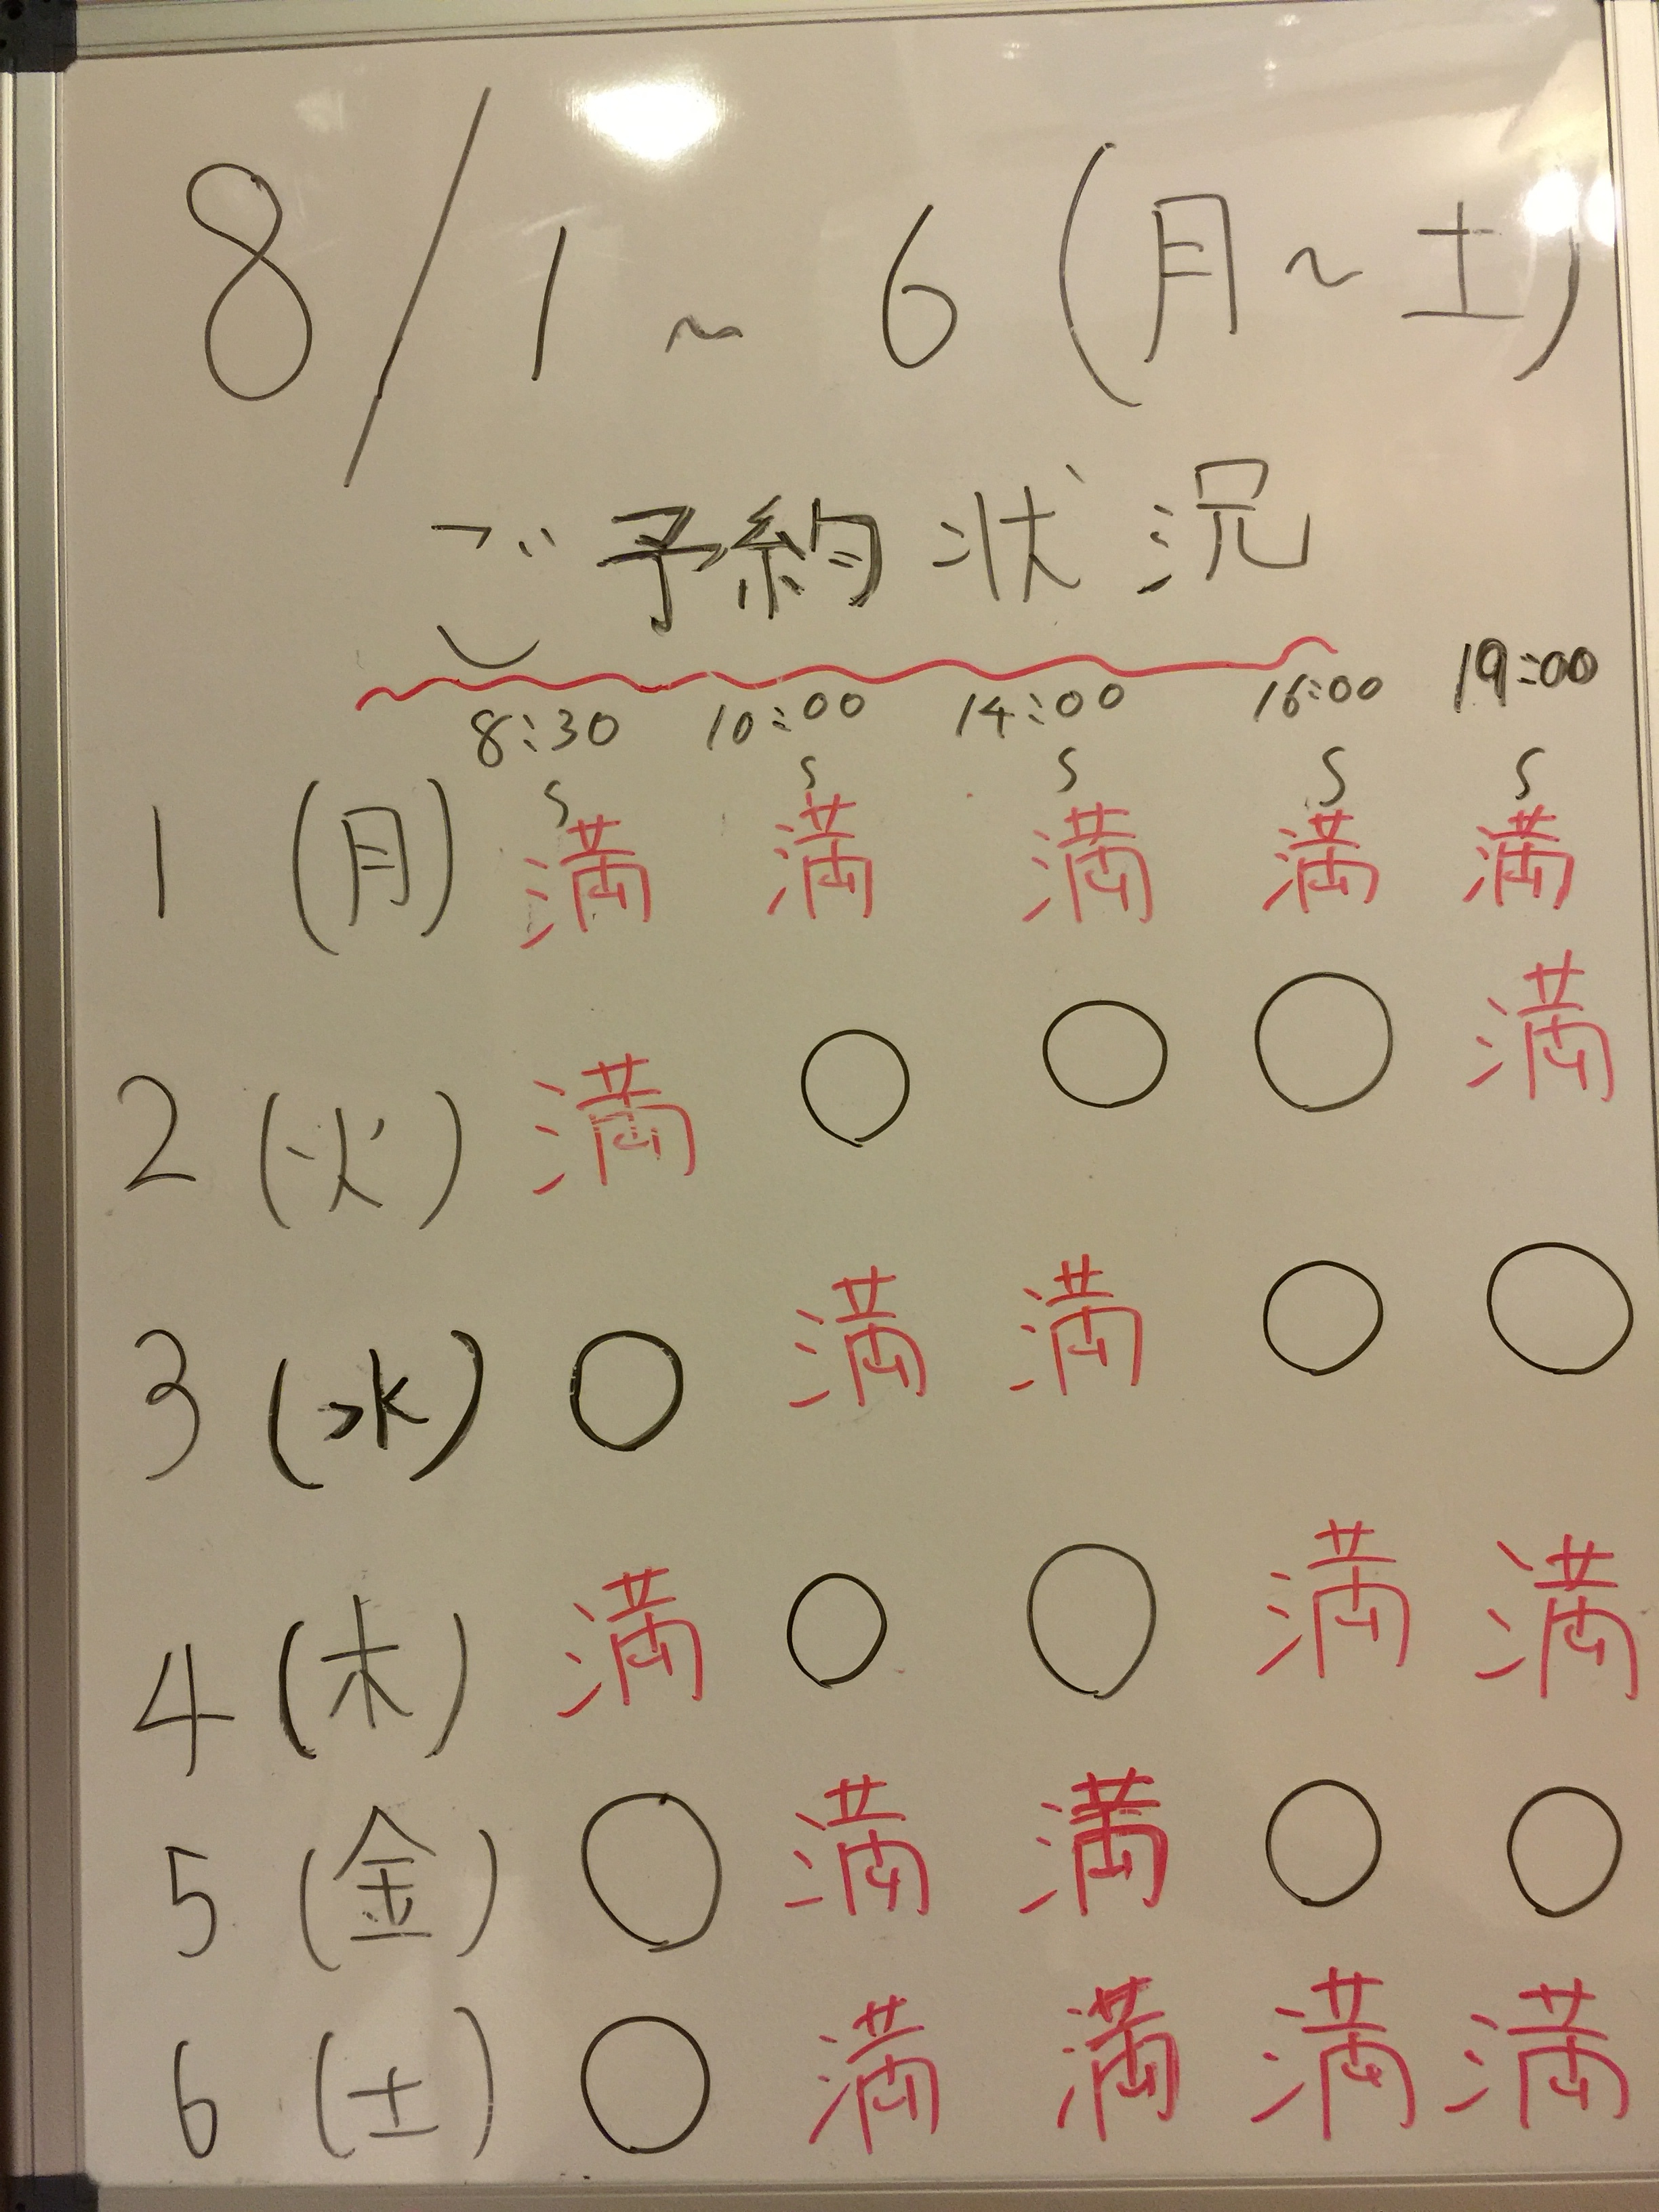 8/1～6(月～土)
ご予約状況
8:30～ 10:00～ 14:00～ 16:00～ 19:00～
1(月) 満 満 満 満 満
2(火) 満 ○ ○ ○ 満
3(水) ○ 満 満 ○ ○
4(木) 満 ○ ○ 満 満
5(金) ○ 満 満 ○ ○
6(土) ○ 満 満 満 満